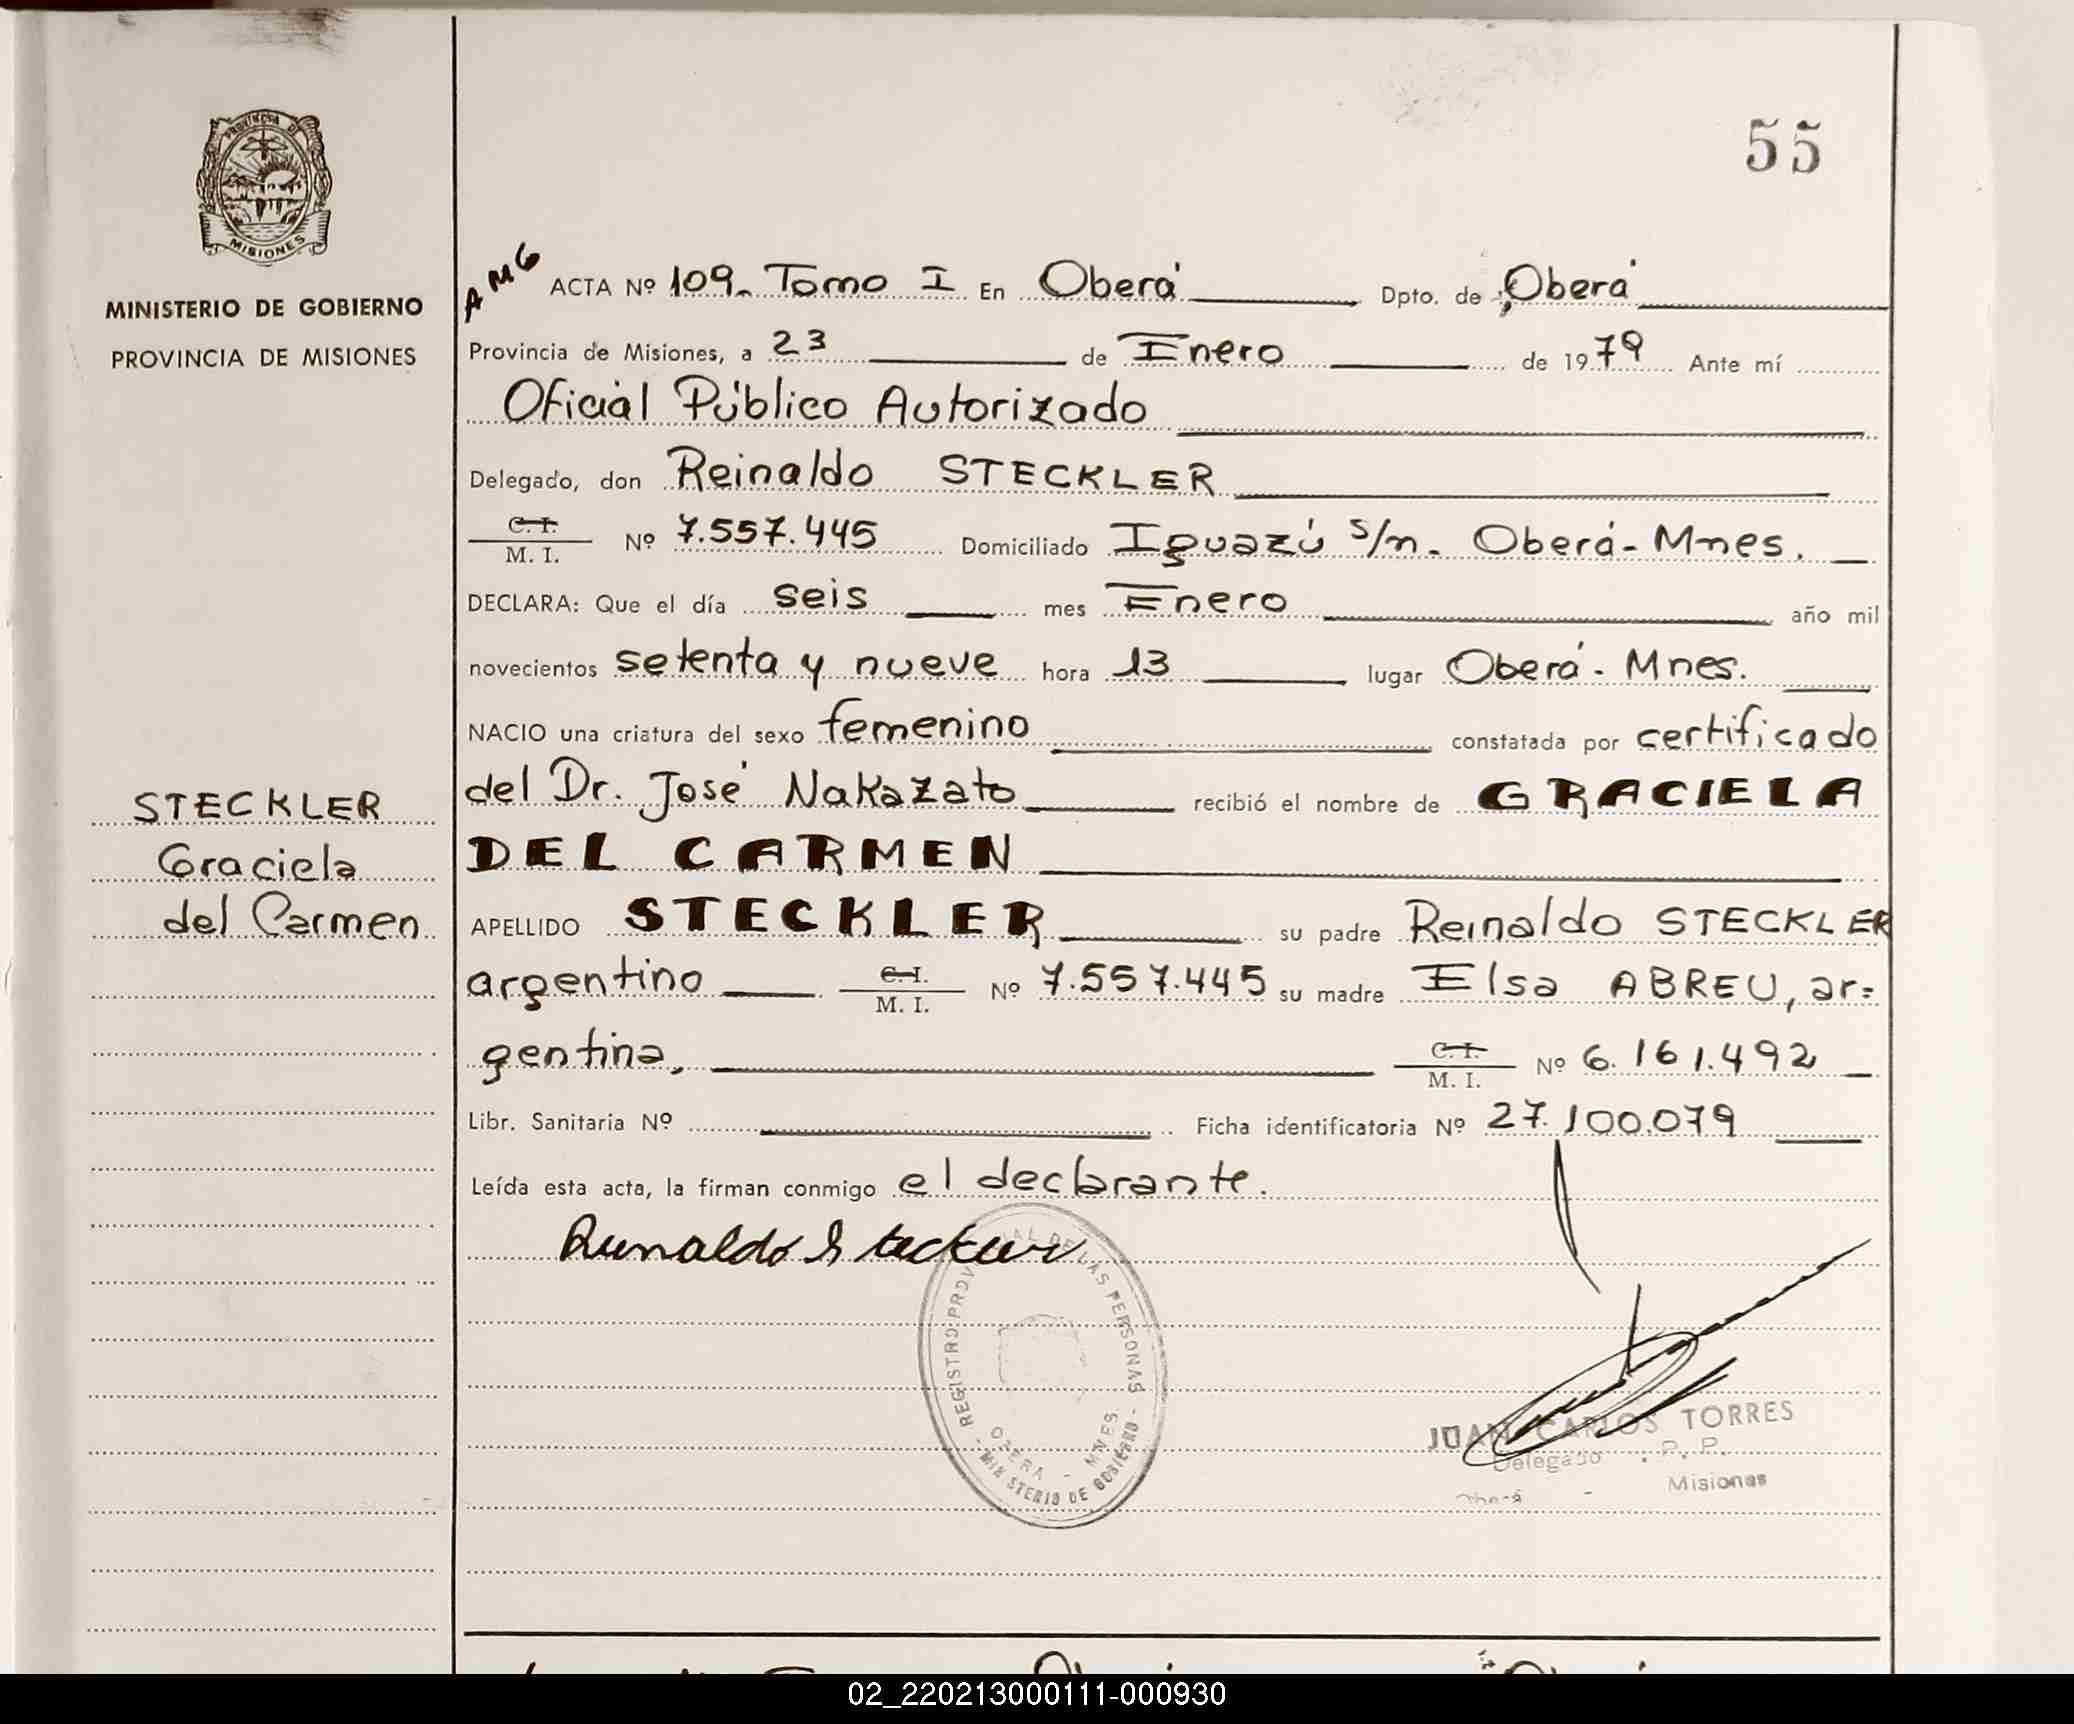 55
PROVINCIA DE
MISIONES
MINISTERIO DE GOBIERNO
PROVINCIA DE MISIONES
STECKLER
Graciela
del Carmen
AMG ACTA Nº 109. Tomo I En Oberá Dpto. de Oberá
Provincia de Misiones, a 23 de Enero de 1979 Ante mí
Oficial Público Autorizado
Delegado, don Reinaldo STECKLER
C. I.
M. I. Nº 7.557.445 Domiciliado Iguazú s/n. Oberá - Mnes.
DECLARA: Que el día seis mes Enero año mil
novecientos setenta y nueve hora 13 lugar Oberá - Mnes.
NACIO una criatura del sexo femenino constatada por certificado
del Dr. José Nakazato recibió el nombre de GRACIELA
DEL CARMEN
APELLIDO STECKLER su padre Reinaldo STECKLER
argentino C. I.
M. I. Nº 7.557.445 su madre Elsa ABREU, ar=
gentina, C. I.
M. I. Nº 6.161.492
Libr. Sanitaria Nº Ficha identificatoria Nº 27.100.079
Leída esta acta, la firman conmigo el declarante.
Reinaldo Steckler
REGISTRO PROVINCIAL DE LAS PERSONAS
OBERA - MNES.
- MINISTERIO DE GOBIERNO -
JUAN CARLOS TORRES
Delegado R. P. P.
Oberá - Misiones
02_220213000111-000930